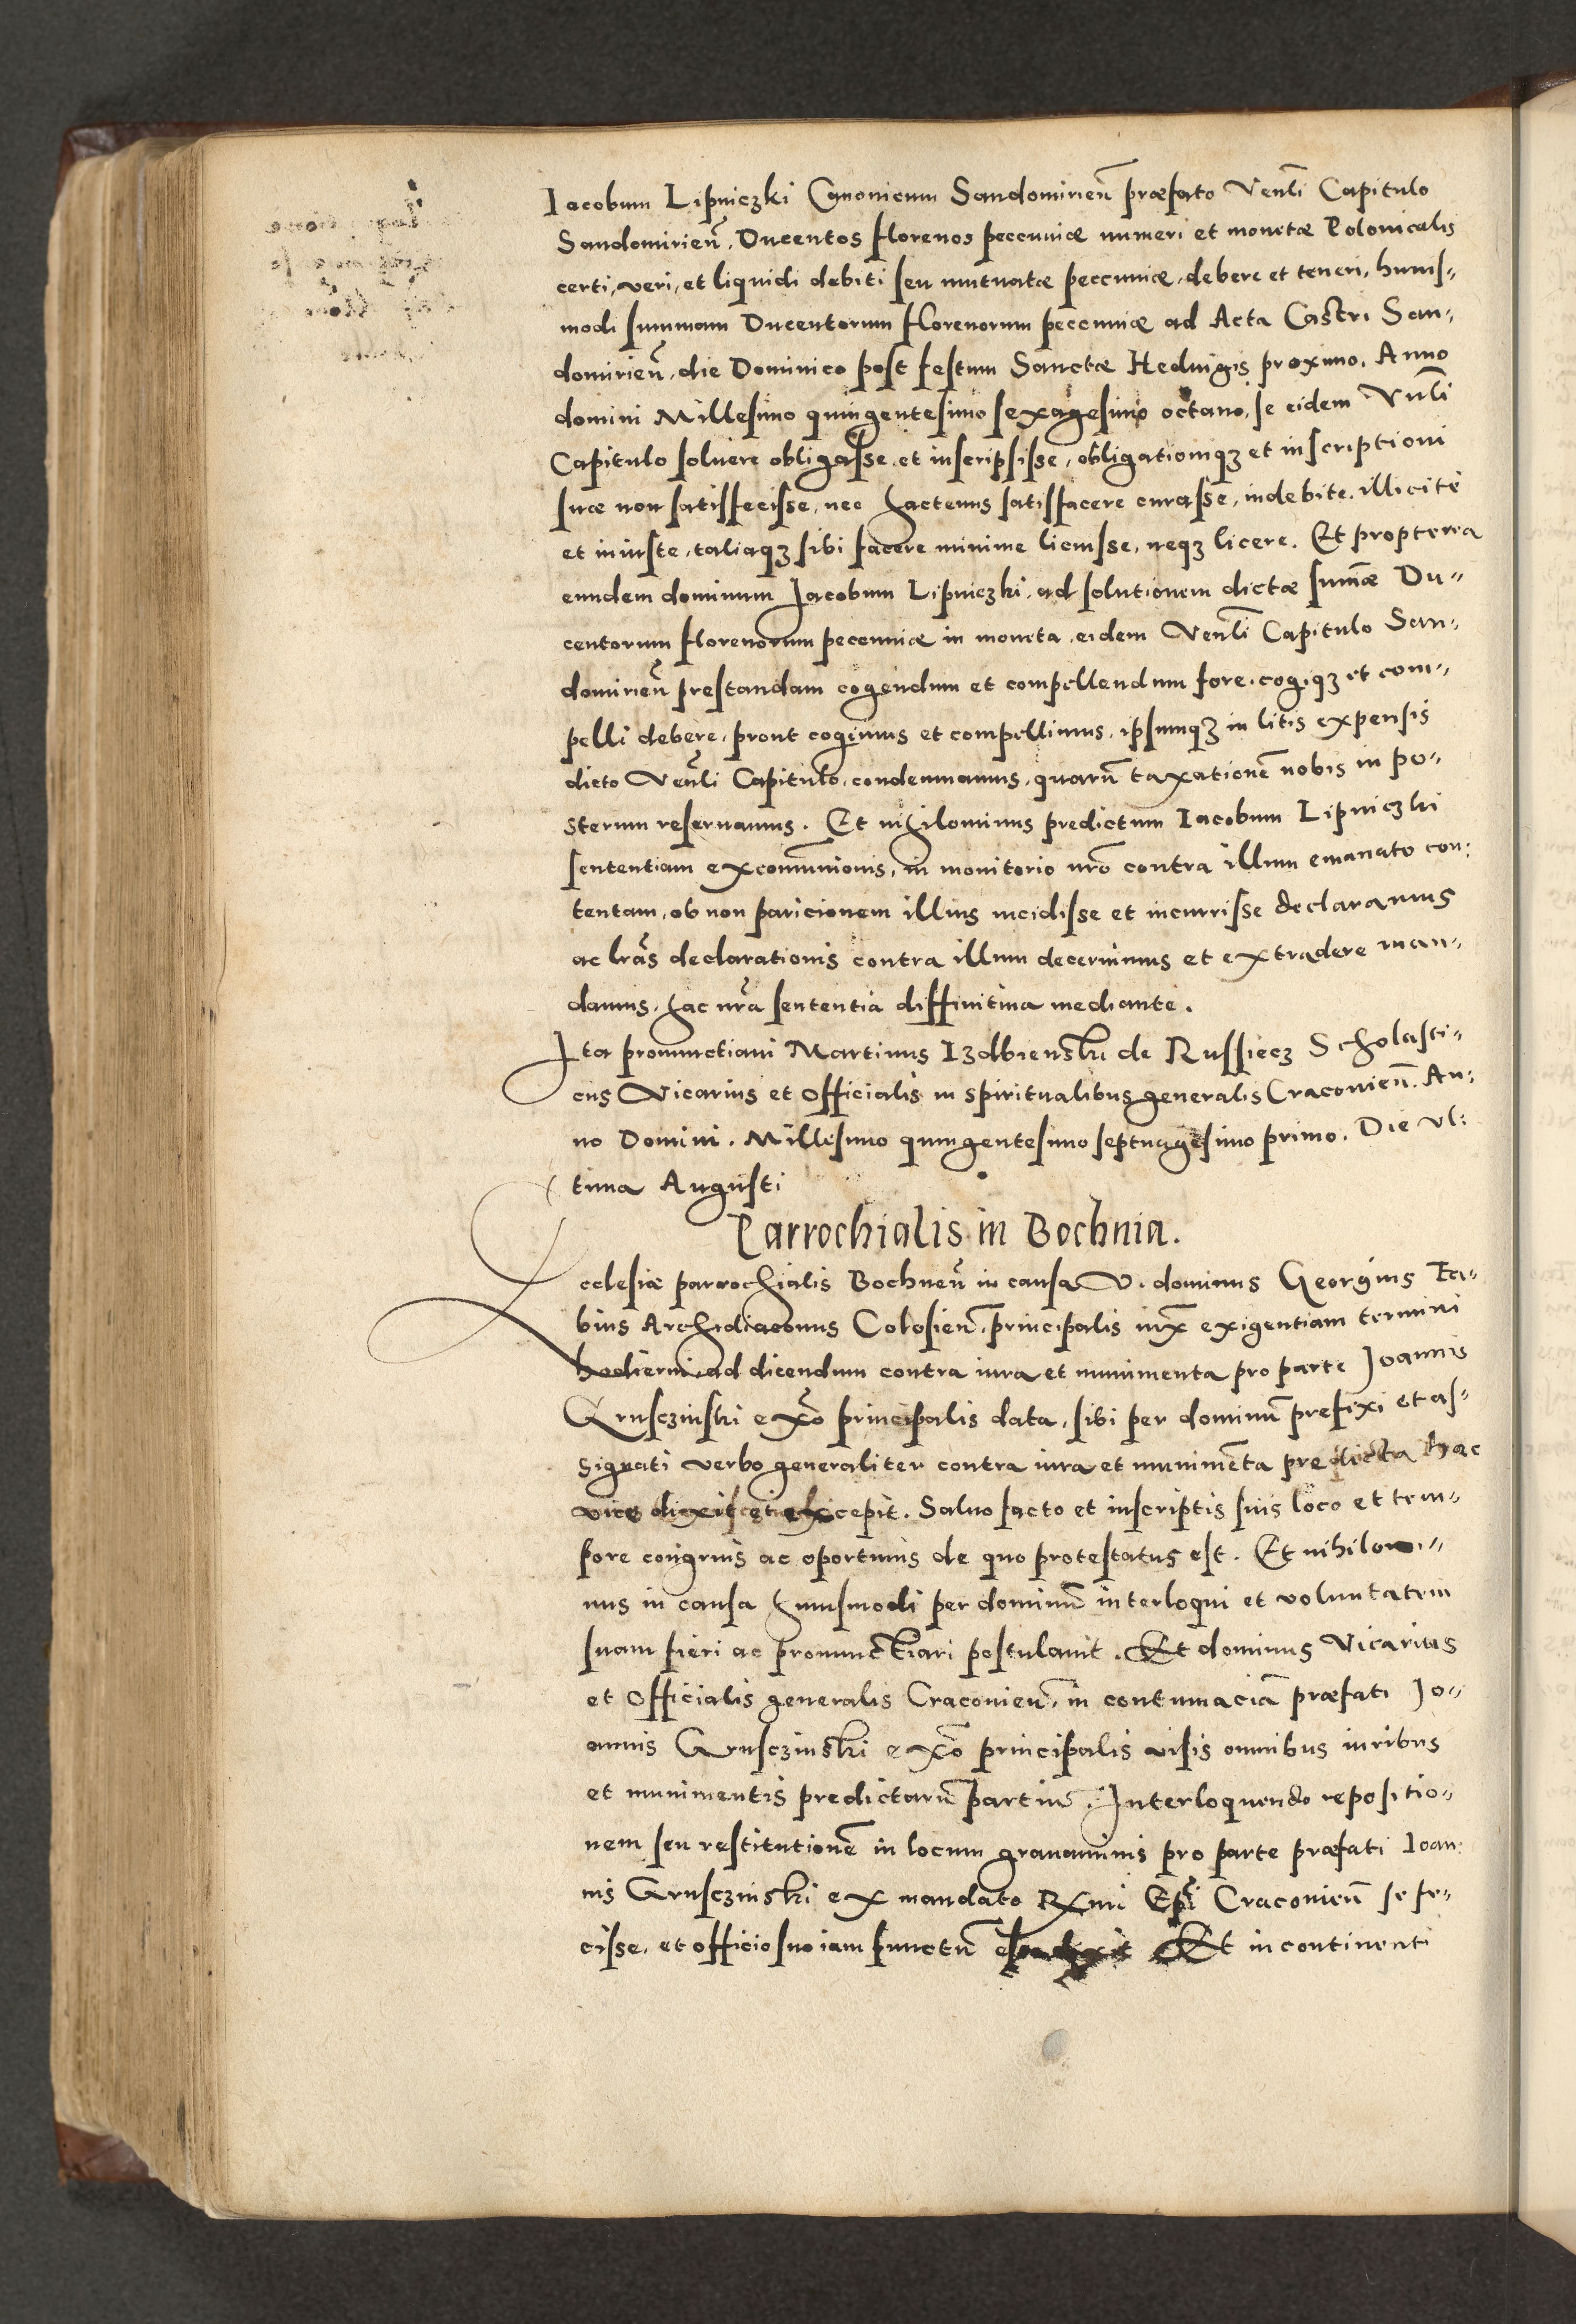 Iacobum Lipniczki Canonicum Sandomirieñ præfato Venl̃i Capitulo
Sandomirieñ, Ducentos florenos peccuniæ numeri et monetæ Polonicalis
certi, veri, et liquidi debiti seu mutuatæ peccuniæ, debere et teneri, huius-
modi summam Ducentorum florenorum peccuniæ ad Acta Castri San-
domirieñ, die Dominico post festum Sanctæ Heduigis proximo, Anno
domini Millesimo quingentesimo sexagesimo octauo, se eidem Vnl̃i
Capitulo soluere obligasse et inscripsisse, obligationiqȝ et inscriptioni
suæ non satisfecisse, nec hactenus satisfacere curasse, indebite, illicite
et iniuste, taliaqȝ sibi facere minime licuisse, neqȝ licere. Et propterea
eundem dominum Jacobum Lipniczki, ad solutionem dictæ sum̃æ Du-
centorum florenorum peccuniæ in moneta, eidem Venl̃i Capitulo San-
domirieñ prestandam cogendum et compellendum fore, cogiqȝ et com-
pelli debere, prout cogimus et compellimus, ipsumqȝ in litis expensis
dicto Venl̃i Capitulo, condemnamus, quarũ taxationẽ nobis in po-
sterum reseruamus. Et nihilominus predictum Iacobum Lipniczki
sententiam excom̃unionis, in monitorio nr̃o contra illum emanato con-
tentam, ob non paricionem illius incidisse et incurrisse declaramus
ac lr̃as declarationis contra illum decernimus et extradere man-
damus, hac nr̃a sententia diffinitiua mediante.
Ita pronunctiaui Martinus Izdbienski de Russiecz Scholasti-
cus Vicarius et Officialis in spiritualibus generalis Cracouieñ. An-
no Domini. Millesimo quingentesimo septuagesimo primo. Die vl-
tima Augusti
Parrochialis in Bochnia.
Ecclesiæ parrochialis Bochneñ in causa V. dominus Georgius Fa-
bius Archidiaconus Colosieñ. principalis iux̃ exigentiam termini
hodierni ad dicendum contra iura et munimenta pro parte Joannis
Grusczinski ex̃o principalis data, sibi per dominũ prefixi et as-
signati verbo generaliter contra iura et munimẽta predicta hac
vice dixit et excepit. Saluo facto et inscriptis suis loco et tem-
pore congruis ac oportunis de quo protestatus est. Et nihilomi-
nus in causa huiusmodi per dominũ interloqui et voluntatem
suam fieri ac pronunctiari postulauit. Et dominus Vicarius
et Officialis generalis Cracouieñ, in contumaciã præfati Jo-
annis Grusczinski ex̃o principalis visis omnibus iuribus
et munimentis predictarũ partiũ. Interloquendo repositio-
nem seu restitutionẽ in locum grauaminis pro parte præfati Ioan-
nis Grusczinski ex mandato Rx̃mi Ep̃i Cracouieñ se fe-
cisse, et officio suo iam functũ Et incontinenti